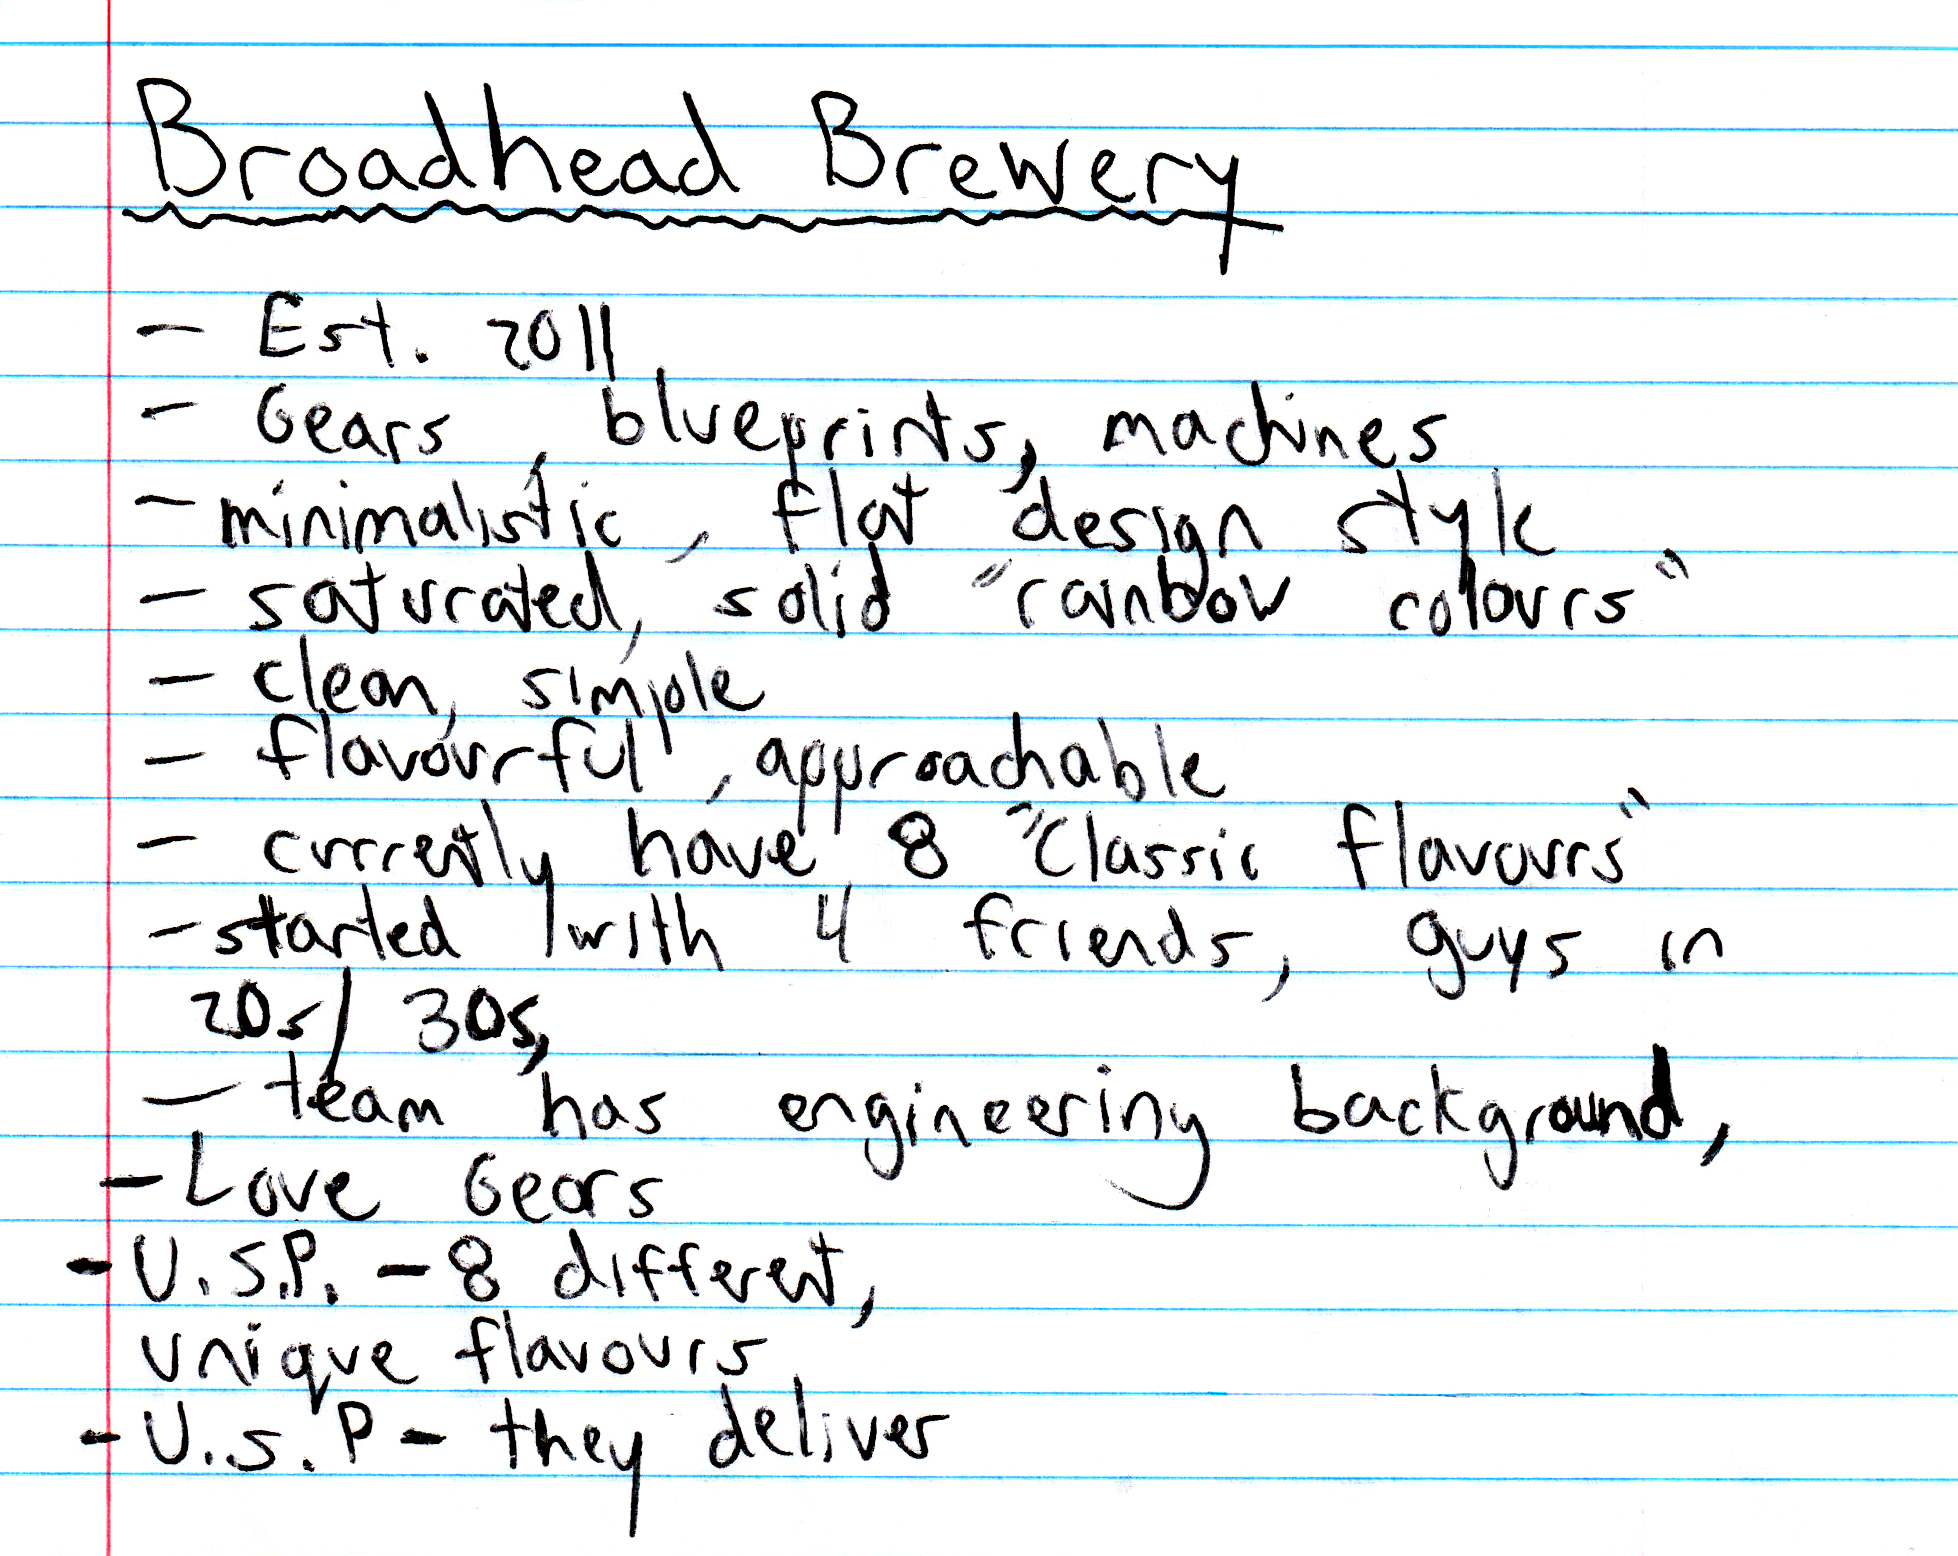 Broadhead Brewery
- Est. 2011
- Gears, blueprints, machines
- minimalistic, flat design style
- saturated, solid "rainbow colours"
- clean, simple
- flavourful, approachable
- currently have 8 "Classic flavours"
- started with 4 friends, guys in
20s/30s,
- team has engineering background,
- Love Gears
- U.S.P. - 8 different,
unique flavours
- U.S.P - they deliver